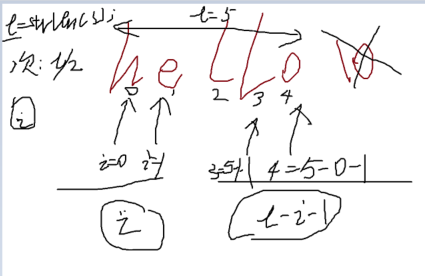 l=strlen(s);
l=5
次: l/2
h e l l o
\0
0 1 2 3 4
i
i=0 i=1 4=5-0-1
i l-i-1